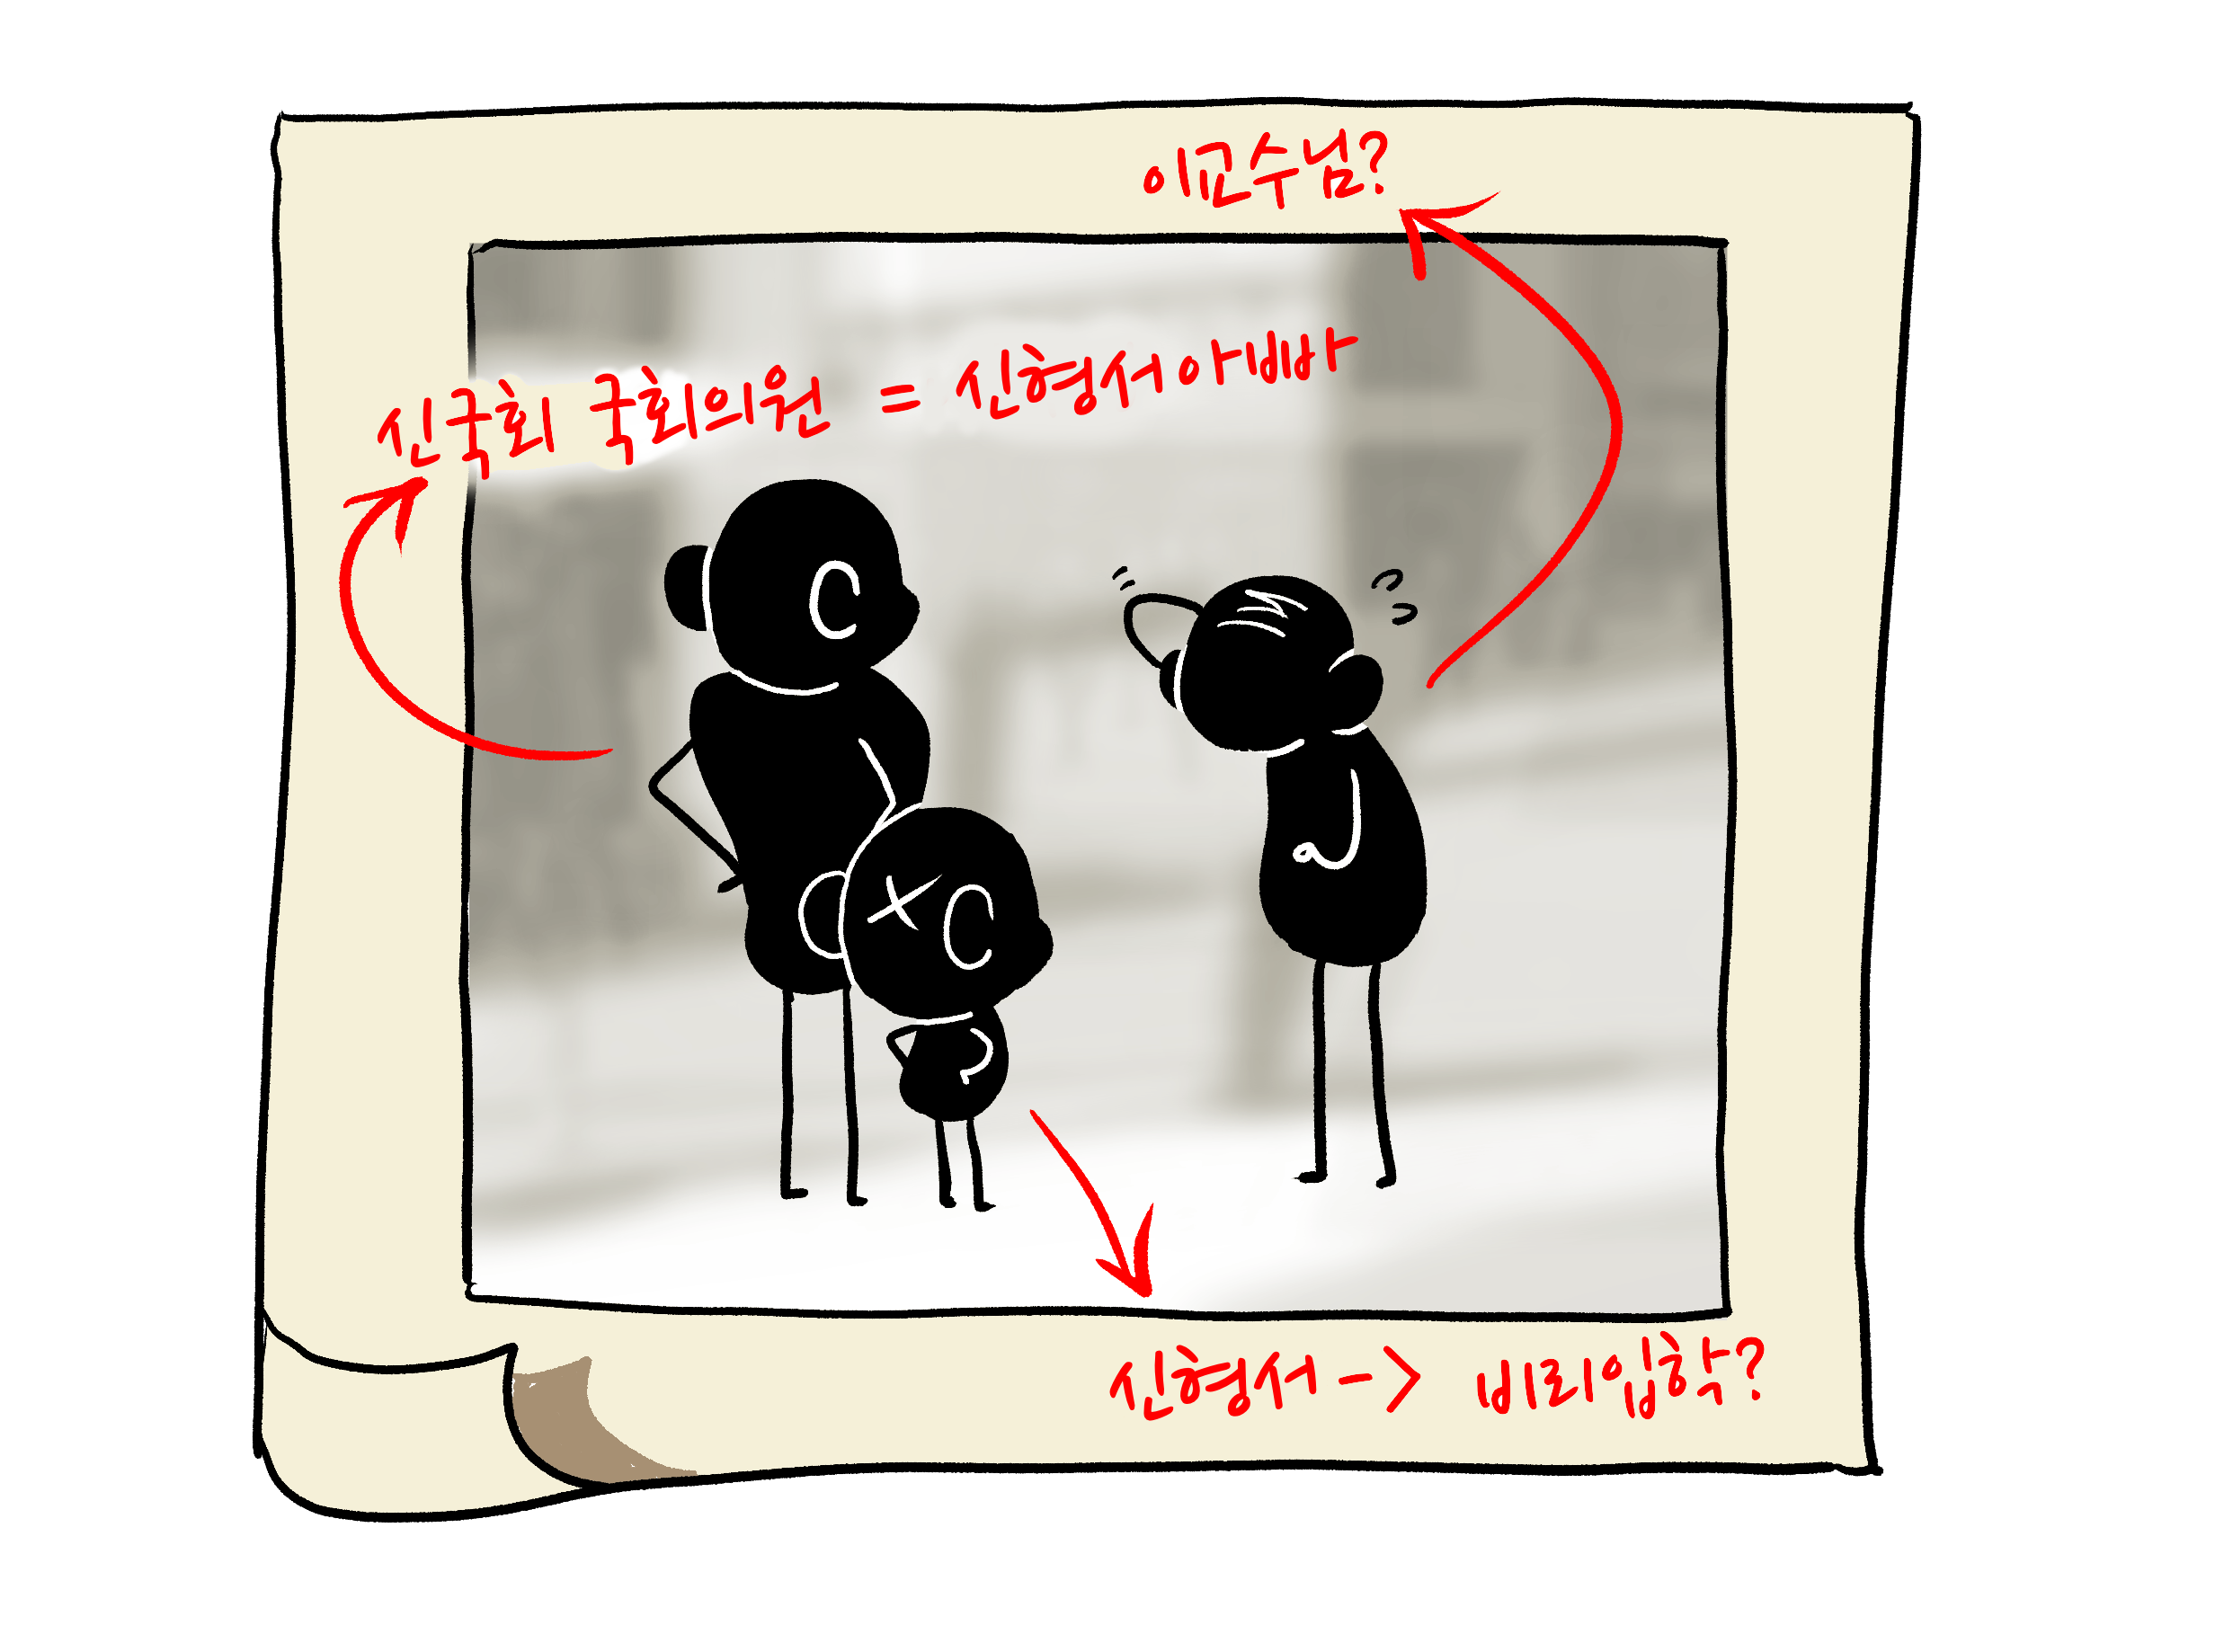 이교수님?
신국회 국회의원 = 신형서아빠
신형서 -> 비리입학?